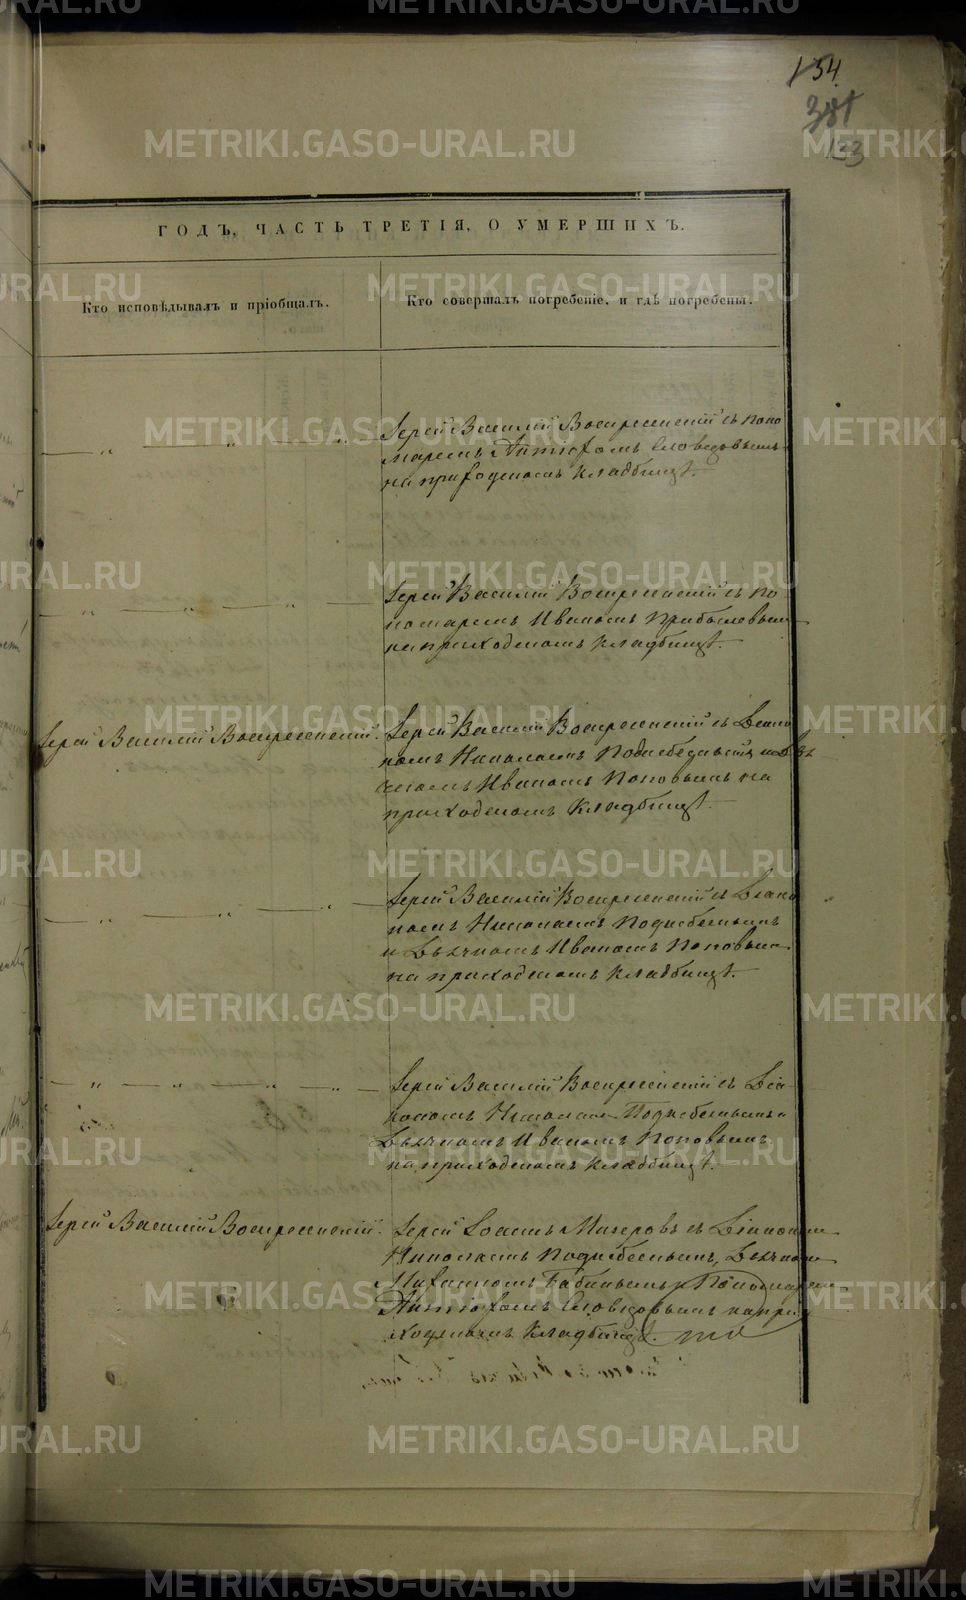 154
381
133
ГОДЪ, ЧАСТЬ ТРЕТІЯ, О УМЕРШИХЪ.
Кто исповѣдывалъ и пріобщалъ.
Кто совершалъ погребеніе, и гдѣ погребены.
Іерей Василій Воскресенскій съ поно
маремъ Антіохомъ Словцовымъ
на приходскомъ кладбищѣ.
Іерей Василій Воскресенскій съ по
номаремъ Иваномъ Прибылевымъ
на приходскомъ кладбищѣ.
Іерей Василій Воскресенскій.
Іерей Василій Воскресенскій съ Діако
номъ Николаемъ и Дья
чкомъ Иваномъ Поповымъ на
приходскомъ кладбищѣ.
Іерей Василій Воскресенскій съ Діако
номъ Николаемъ
и Дьячкомъ Иваномъ Поповымъ
на приходскомъ кладбищѣ.
Іерей Василій Воскресенскій съ Діа
кономъ Николаемъ
Дьячкомъ Иваномъ Поповымъ
на приходскомъ кладбищѣ.
Іерей Василій Воскресенскій.
Іерей съ Діакономъ
Николаемъ Дьячкомъ
Бабинымъ и Пономаремъ
Антіохомъ Словцовымъ на при
ходскомъ кладбищѣ.
METRIKI.GASO-URAL.RU